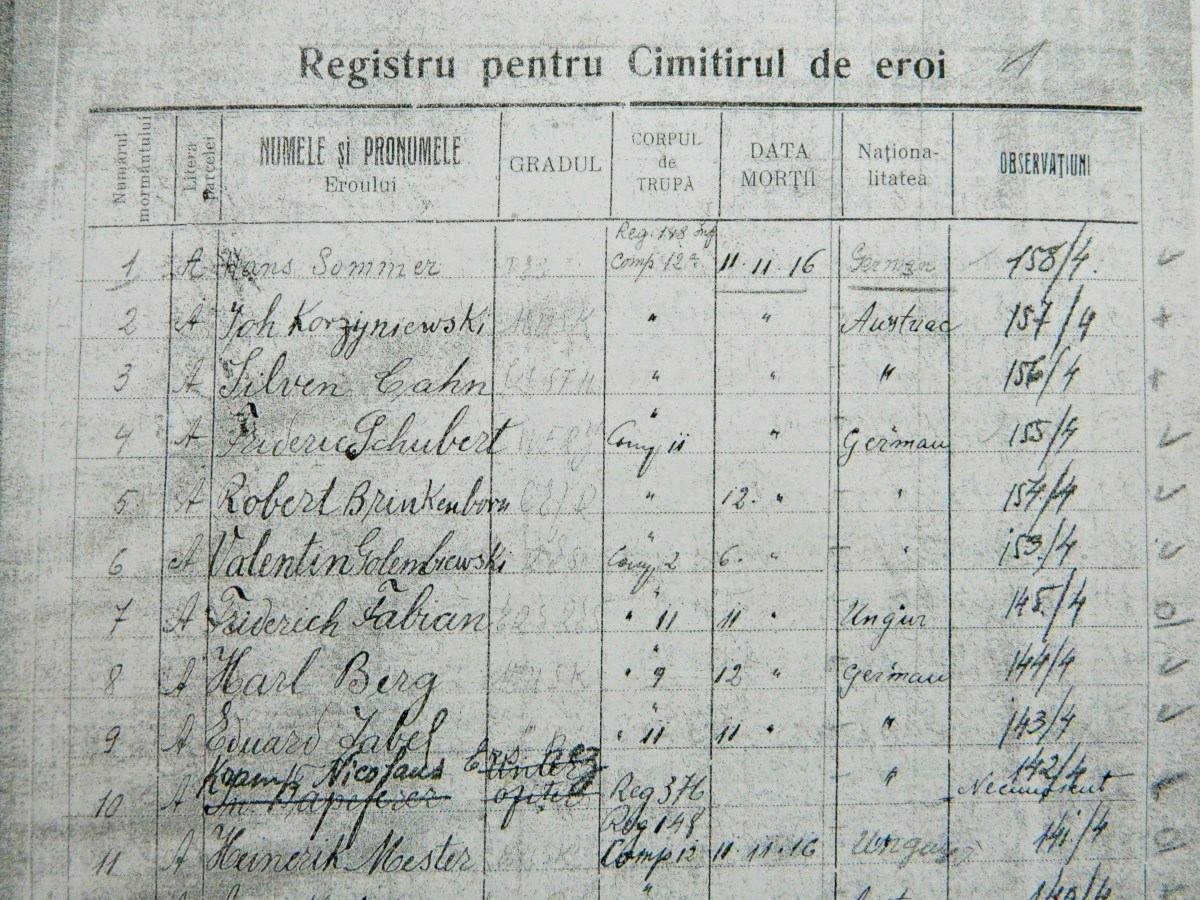 Registru pentru Cimitirul de eroi 1
Numărul mormântului Litera parcelei NUMELE și PRONUMELE Eroului GRADUL CORPUL de TRUPĂ DATA MORȚII Naționalitatea OBSERVAȚIUNI
1 A Hans Sommer Reg. 148 Inf Comp 12a 11.11.16 German 158/4.
2 A Joh Korzyniewski " " Austriac 157/4
3 A Silven Cahn " " " 156/4
4 A Frideric Schubert " Comp 11 " German 155/4
5 A Robert Brinkenborn " 12. " " 154/4
6 A Valentin Golembiewski " Comp 2 6. " " 153/4
7 A Friderich Fabian " " 11 11 " Ungur 145/4
8 A Harl Berg " " 9 12 " German 144/4
9 A Eduard Jabel " " 11 11 " " 143/4
Nicolaus Ers. Rez " 142/4
10 A Unter ofițer Reg 376 Necunoscut
11 A Heinerik Mester Reg 148 Comp 12 11 11.16 Ungur 141/4
" 140/4